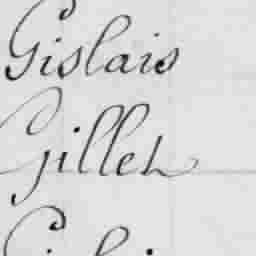 Gislais
Gillet